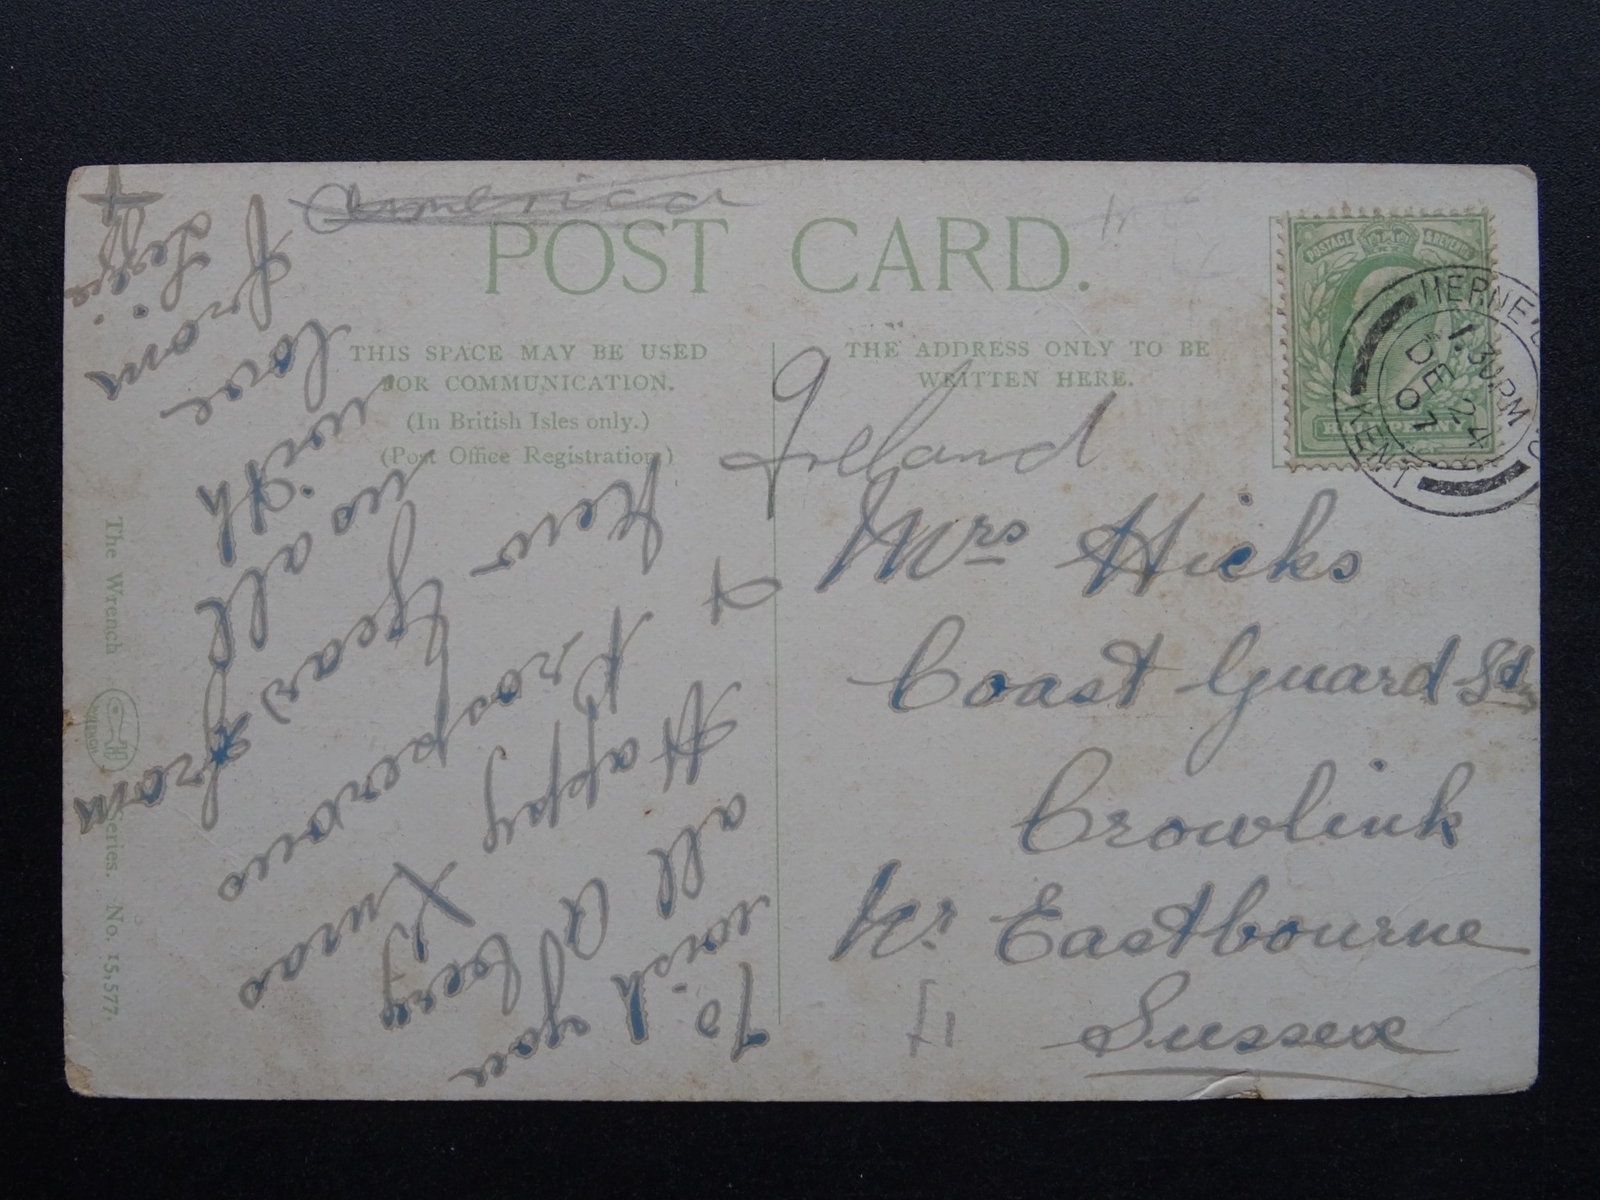 America
POST CARD.
THIS SPACE MAY BE USED
FOR COMMUNICATION.
(In British Isles only.)
(Post Office Registration)
THE ADDRESS ONLY TO BE
WRITTEN HERE.
POSTAGE & REVENUE
HALFPENNY
HERNE
1.30PM
DE 24
07
KENT
Ireland
Mrs Hicks
Coast Guard Stn
Crowlink
Nr Eastbourne
Sussex
To wish you
all A Very
Happy Xmas
& Prosperous
New Year from
us all
with
love
from
The Wrench Series. No. 15,577.
WRENCH